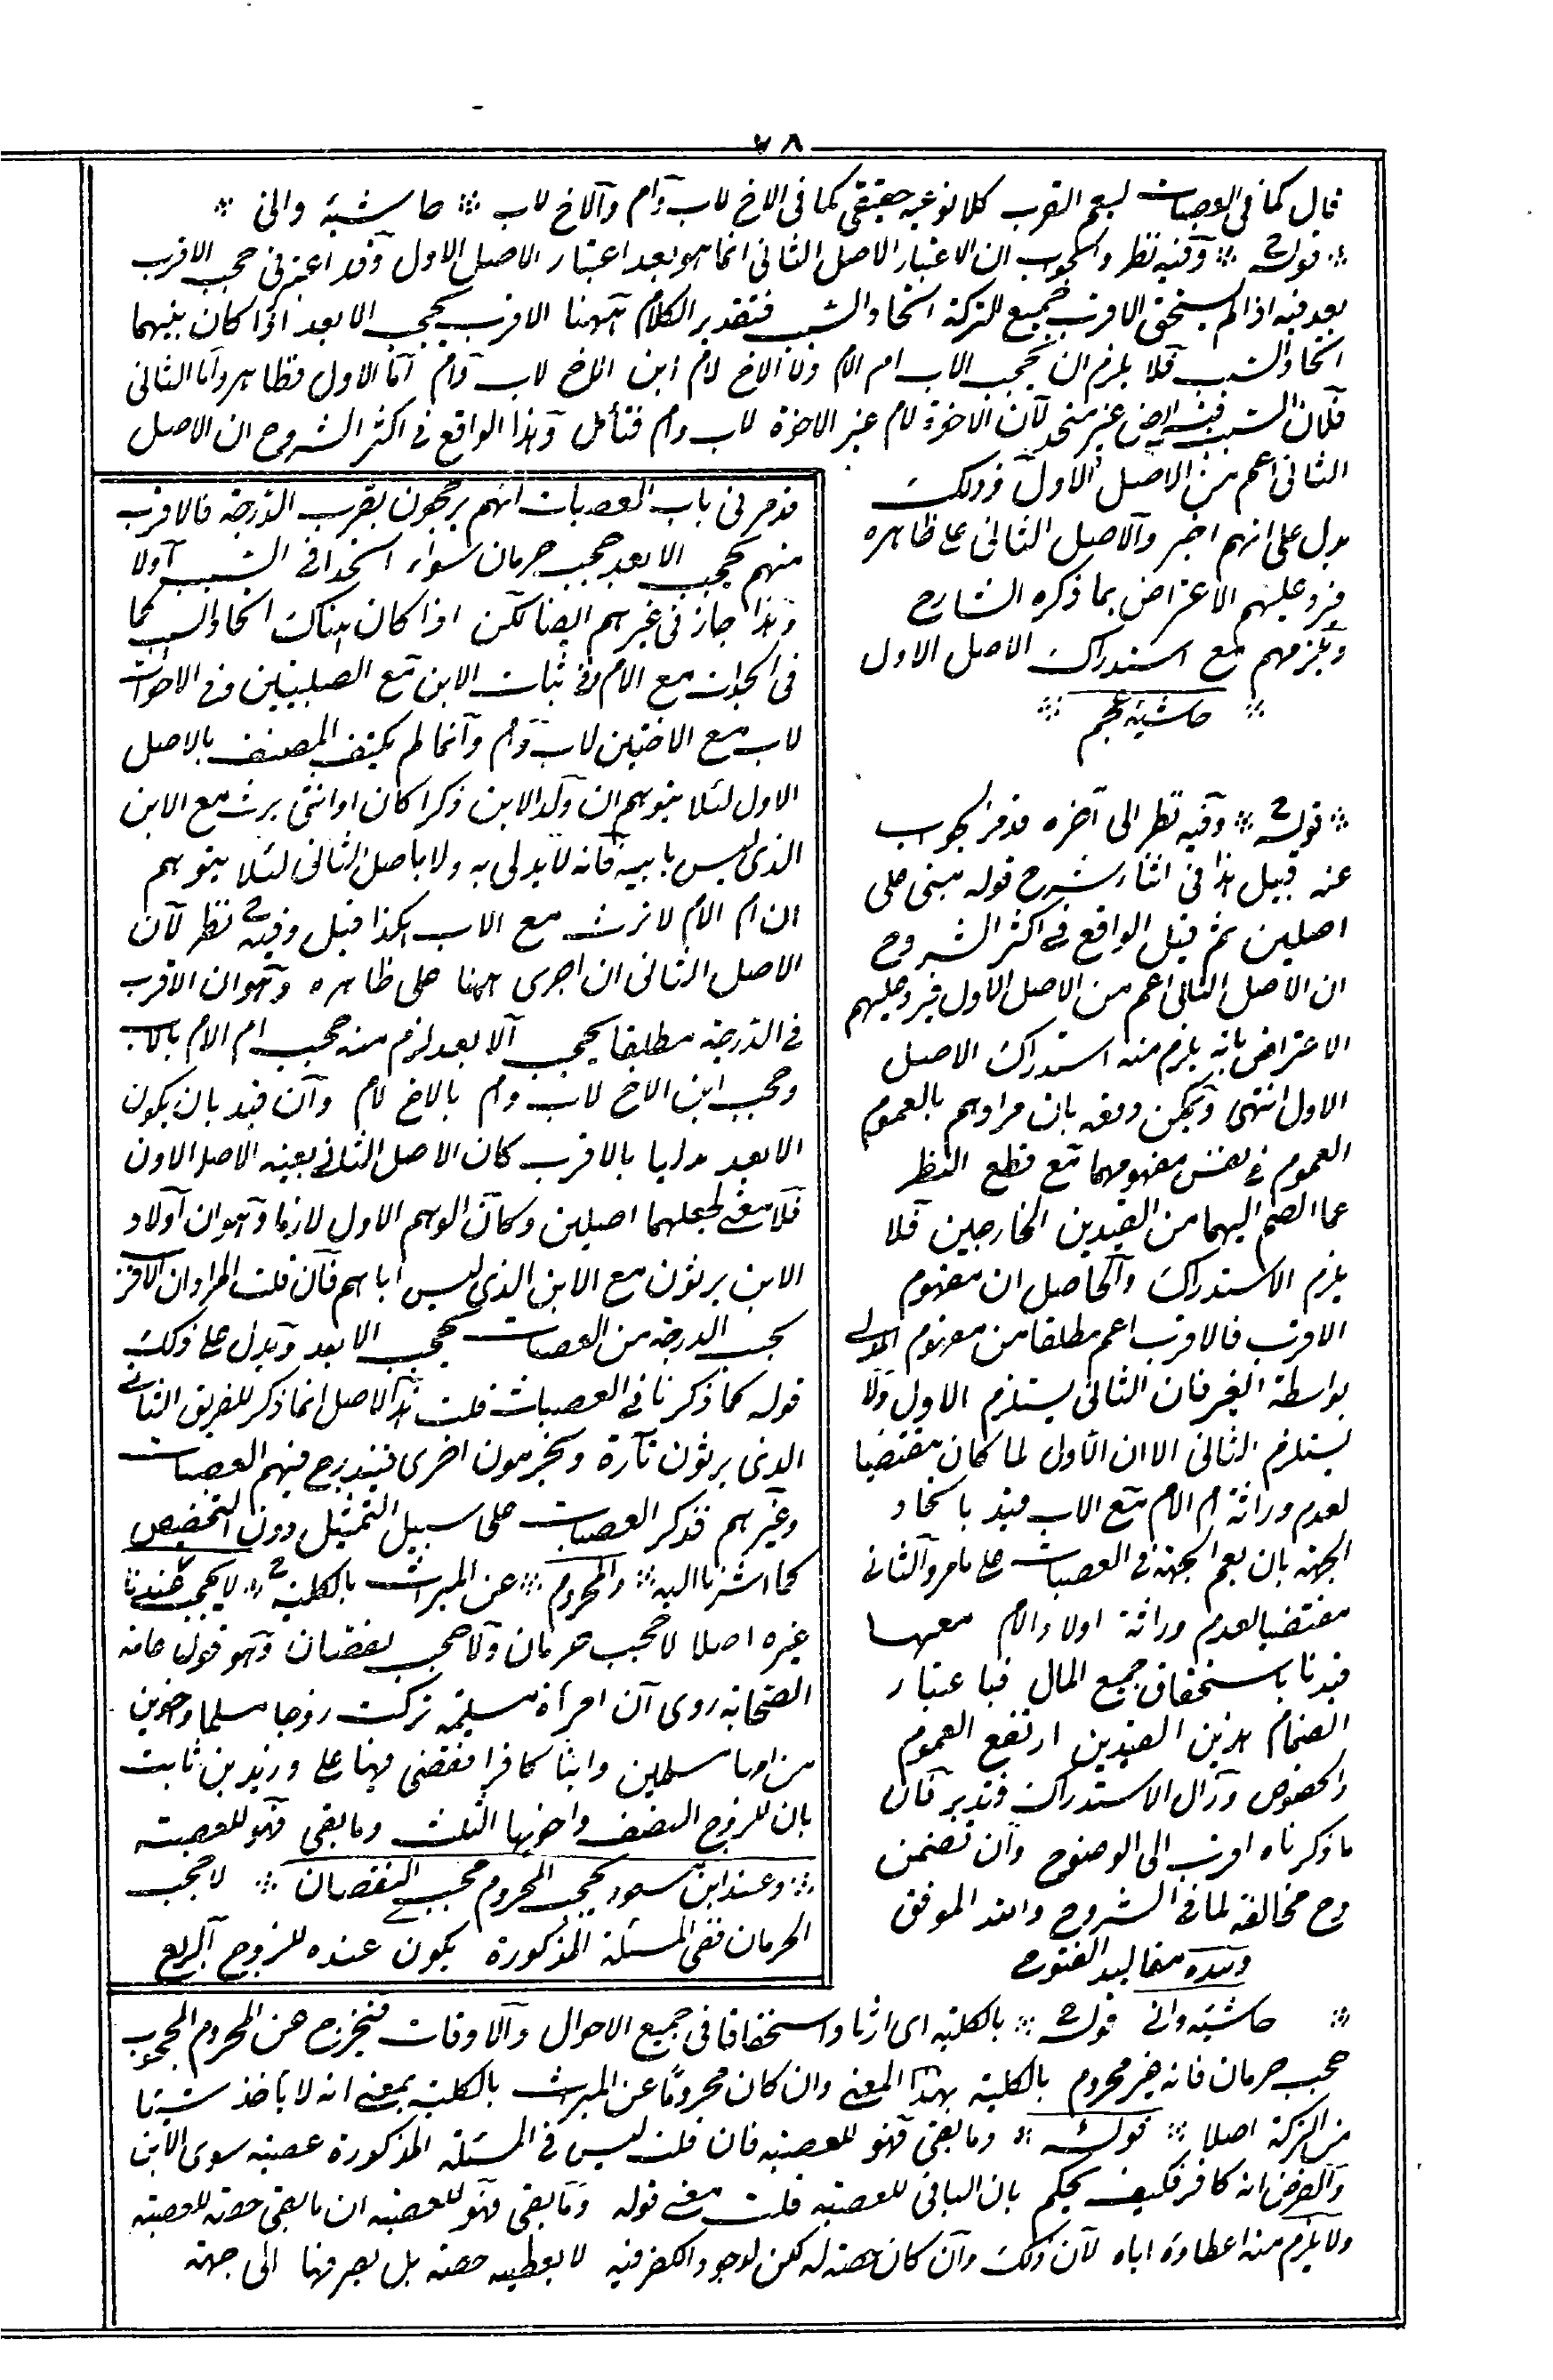 ٧٨
قال كما فى العصبات ليعم القرب كلا نوعيه حقيقى كما فى الاخ لاب وام والاخ لاب ؞ حاشيه وانى ؞
؞ قوله ؞ وفيه نظر والجواب ان الاعتبار الاصل الثانى انما هو بعد اعتبار الاصل الاول وقد اعتبر فى حجب الاقرب
بعد فيه اذا لم يستحق الاقرب جميع التركة اتحاد السبب فتقدير الكلام ههنا الاقرب يحجب الابعد اذا كان بينهما
اتحاد السبب فلا يلزم ان يحجب الاب ام الام ولا الاخ لام ابن الاخ لاب وام اما الاول فظاهر واما الثانى
فلان السبب فيه ايض غير متحد لان الاخوة لام غير الاخوة لاب وام فتأمل وهذا الواقع فى اكثر الشروح ان الاصل
الثانى اعم من الاصل الاول وذلك
يدل على انهم اجر والاصل الثانى على ظاهره
فيرد عليهم الاعتراض بما ذكره الشارح
ويلزمهم مع استدراك الاصل الاول
؞ حاشيه عجم ؞
؞ قوله ؞ وفيه نظر الى آخره قد مر الجواب
عنه قبيل هذا فى اثناء شرح قوله مبنى على
اصلين ثم قيل الواقع فى اكثر الشروح
ان الاصل الثانى اعم من الاصل الاول فيرد عليهم
الاعتراض بانه يلزم منه استدراك الاصل
الاول انتهى ويمكن دفعه بان مرادهم بالعموم
العموم فى نفس مفهومهما مع قطع النظر
عما انضم اليهما من القيدين الخارجين فلا
يلزم الاستدراك والحاصل ان مفهوم
الاقرب فالاقرب اعم مطلقا من مفهوم المدلى
بواسطة الغير فان الثانى يستلزم الاول ولا
يستلزم الثانى الا ان الاول لما كان مقتضيا
لعدم وراثة ام الام مع الاب قيد باتحاد
الجهة بان يعم الجهة فى العصبات على ما مر والثانى
مقتضيا لعدم وراثة اولاد الام معها
قيدنا باستحقاق جميع المال فباعتبار
انضمام هذين القيدين ارتفع العموم
والخصوص وزال الاستدراك فتدبر فان
ما ذكرناه اقرب الى الوضوح وان تضمن
وح مخالفة لما فى الشروح والله الموفق
وبيده مقاليد الفتوح
قد مر فى باب العصبات انهم يرجحون بقرب الدرجة فالاقرب
منهم يحجب الابعد حجب حرمان سواء اتحدا فى السبب اولا
وهذا جاز فى غيرهم ايضا لكن اذا كان هناك اتحاد السبب كما
فى الجدات مع الام وفى بنات الابن مع الصلبيتين وفى الاخوات
لاب مع الاختين لاب وام وانما لم يكتف المصنف بالاصل
الاول لئلا يتوهم ان ولد الابن ذكرا كان او انثى يرث مع الابن
الذى ليس بابيه فانه لا يدلى به ولا باصل الثانى لئلا يتوهم
ان ام الام لا ترث مع الاب هكذا قيل وفيه نظر لان
الاصل الثانى ان اجرى ههنا على ظاهره وهو ان الاقرب
فى الدرجة مطلقا يحجب الابعد لزم منه حجب ام الام بالاب
وحجب ابن الاخ لاب وام بالاخ لام وان قيد بان يكون
الابعد مدليا بالاقرب كان الاصل الثانى بعينه الاصل الاول
فلا معنى لجعلهما اصلين وكان الوهم الاول لازما وهو ان اولاد
الابن يرثون مع الابن الذى ليس اباهم فان قلت المراد ان الاقرب
بحب الدرجة من العصبات يحجب الابعد ويدل على ذلك
قوله كما ذكرنا فى العصبات قلت هذا الاصل انما ذكر للفريق الثانى
الذى يرثون تارة ويحرمون اخرى فيندرج فيهم العصبات
وغيرهم فذكر العصبات على سبيل التمثيل دون التخصيص
كما اشرنا اليه ؞ والمحروم ؞ عن الميراث بالكلية ؞ لا يحجب عندنا
غيره اصلا لا حجب حرمان ولا حجب نقصان وهو قول عامة
الصحابة روى ان امرأة مسلمة تركت زوجا مسلما واخوين
من امها مسلمين وابنا كافرا فقضى فيها على وزيد بن ثابت
بان للزوج النصف ولاخويها الثلث وما بقى فهو للعصبة
؞ وعند ابن مسعود يحجب المحروم حجب النقصان ؞ لا حجب
الحرمان ففى المسئلة المذكورة يكون عنده للزوج الربع
؞ حاشيه وانى قوله ؞ بالكلية اى ارثا واستحقاقا فى جميع الاحوال والاوقات فيخرج عن المحروم المحجوب
حجب حرمان فانه غير محروم بالكلية بهذا المعنى وان كان محروما عن الميراث بالكلية بمعنى انه لا يأخذ شيئا
من التركة اصلا ؞ قوله ؞ وما بقى فهو للعصبة فان قلت ليس فى المسئلة المذكورة عصبة سوى الابن
والفرض انه كافر فكيف يحكم بان الباقى للعصبة قلت معنى قوله وما بقى فهو للعصبة ان ما بقى حصة للعصبة
ولا يلزم منه اعطاؤه اياه لان ذلك وان كان حصة له لكن لوجود الكفر فيه لا يعطيه حصته بل يصرفها الى جهة